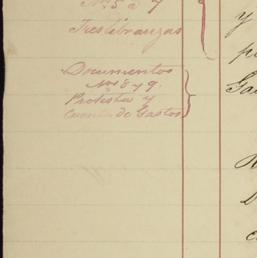 Nos. 5 a 7
Tres libranzas
Documentos
Nos 8 y 9.
Protesta y
Cuenta de Gastos
y